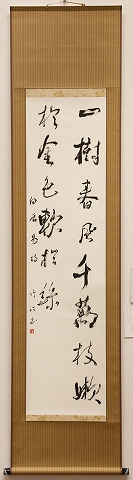 一樹春風千萬枝嫩
於金色軟於絲
白居易詩